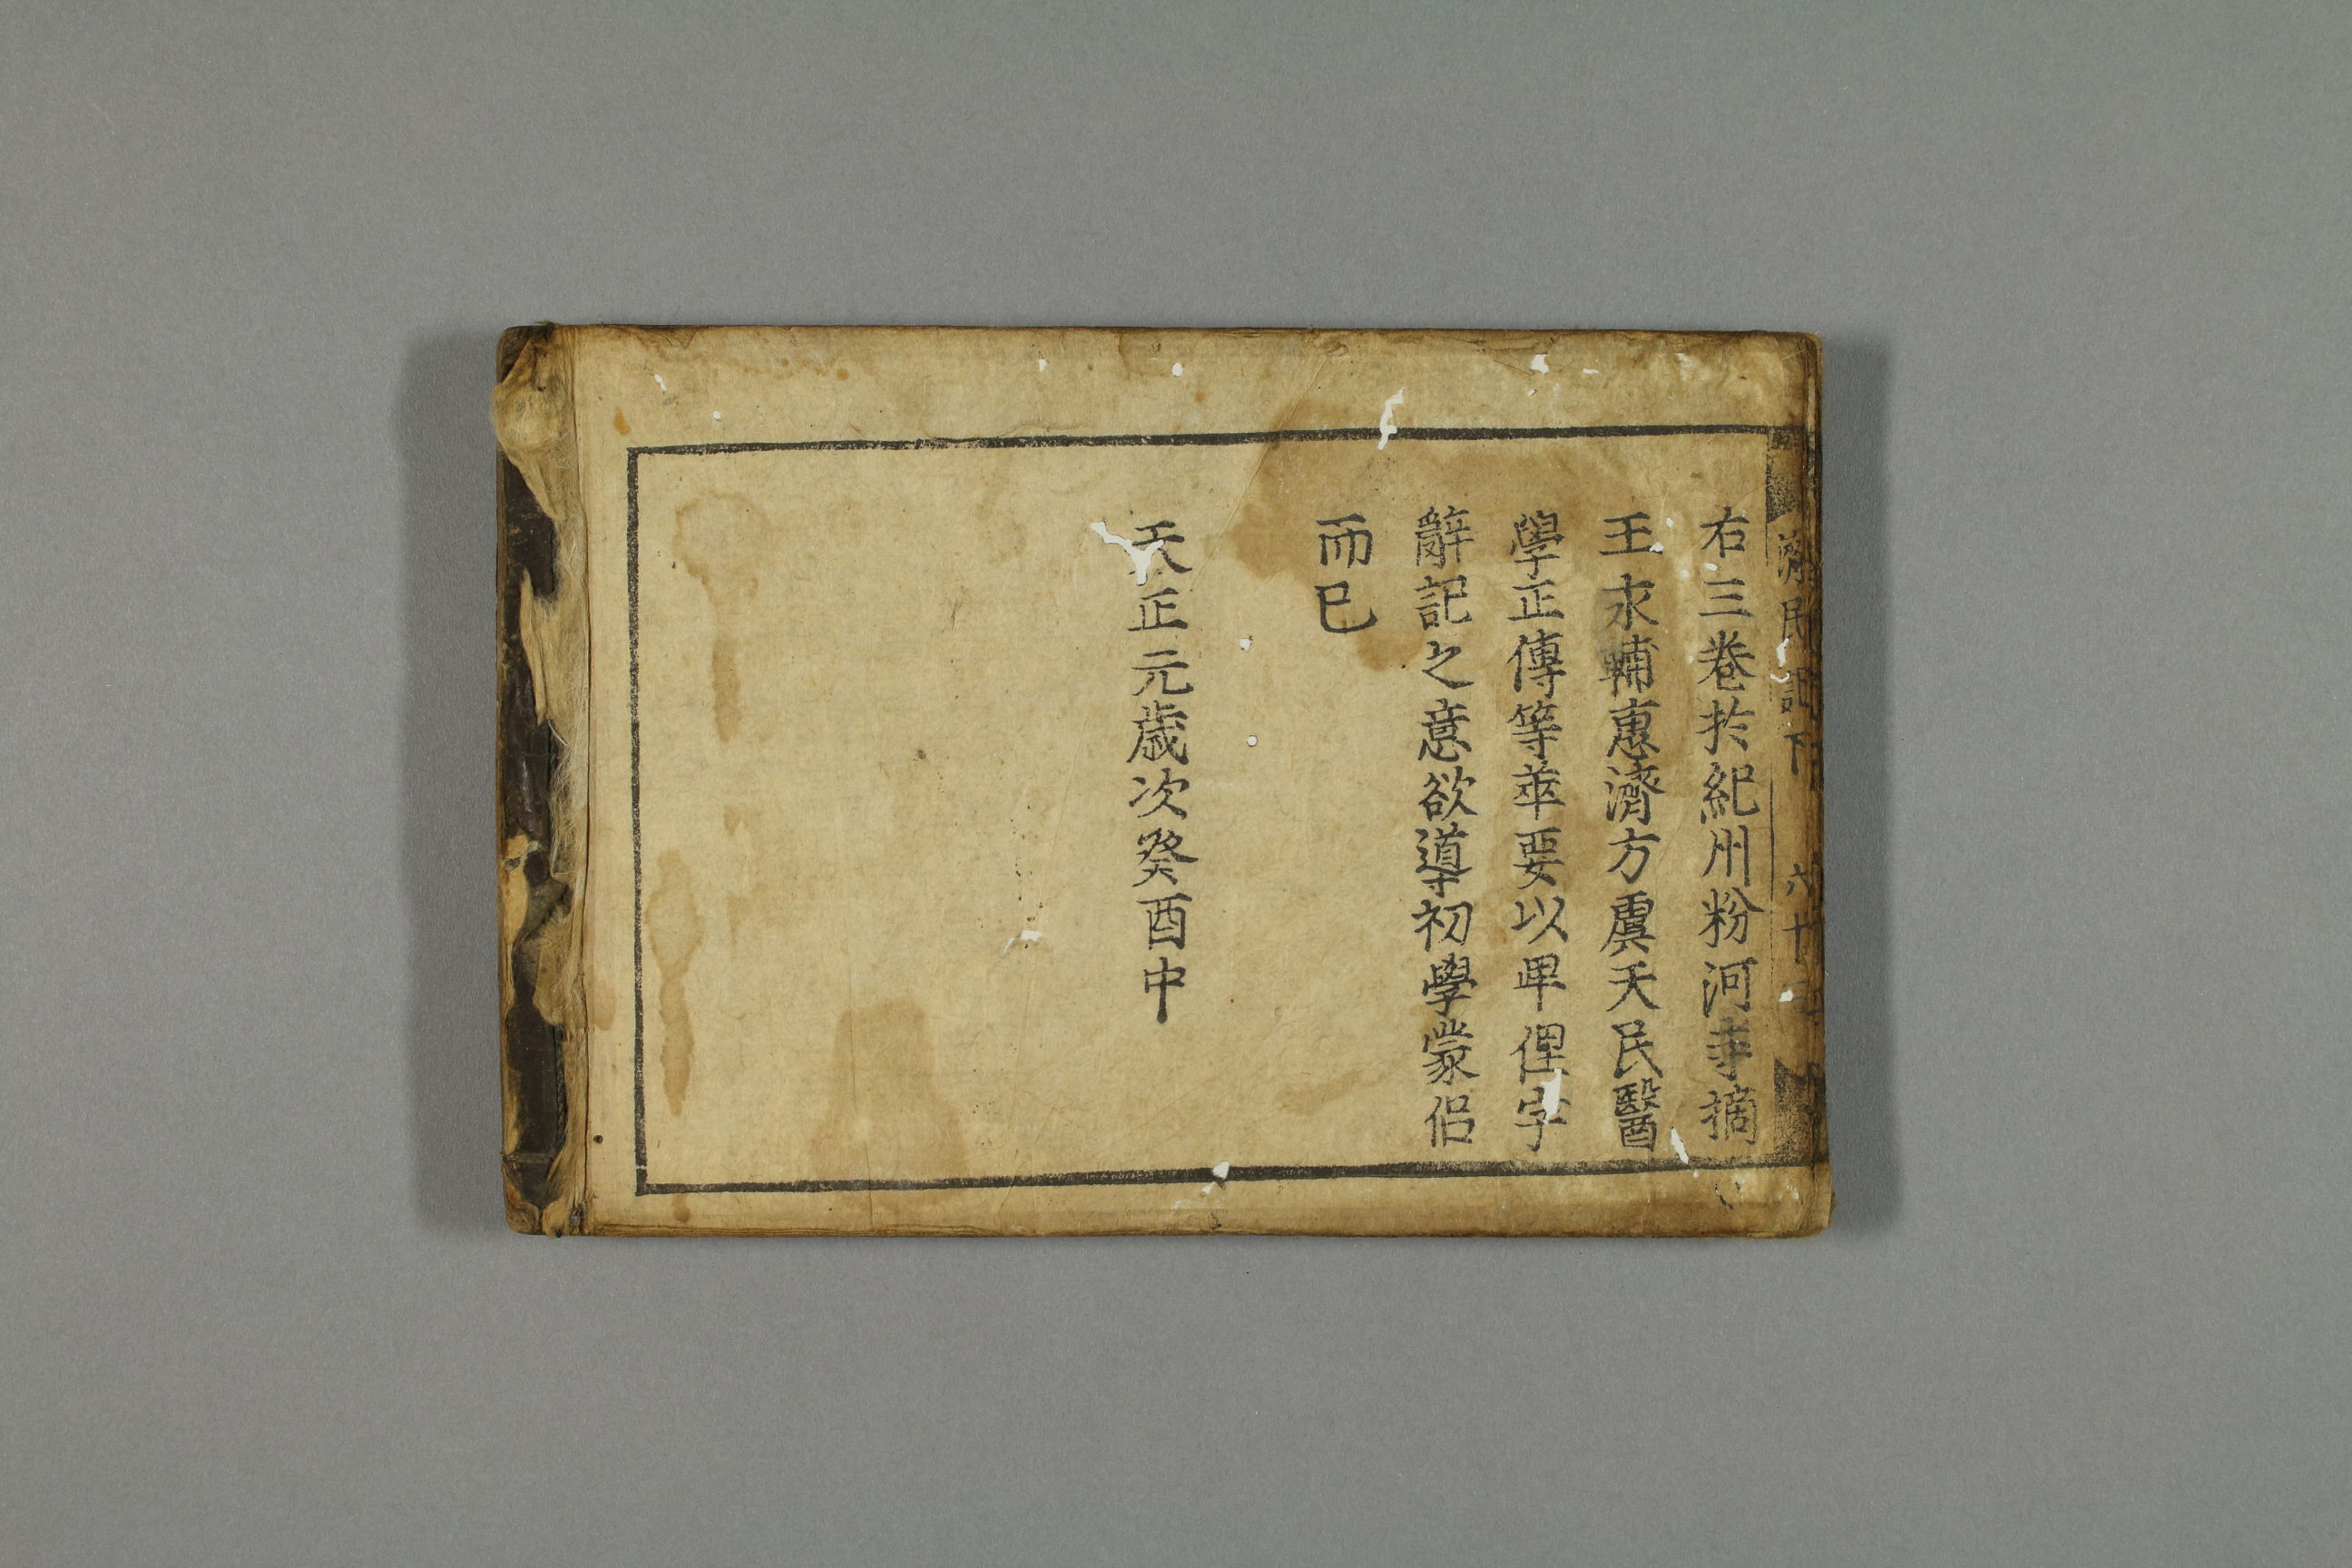 右三卷於紀州粉河寺摘
王永輔惠濟方虞天民醫
學正傳等萃要以卑俚字
辭記之意欲導初學蒙侶
而已
天正元歲次癸酉中
濟民記下 六十